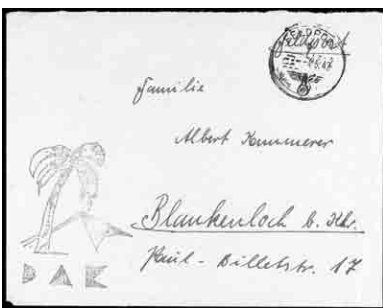 Feldpost
FELDPOST
Familie
Albert Kammerer
Blankenloch b. Khr.
Paul - Billetstr. 17
DAK